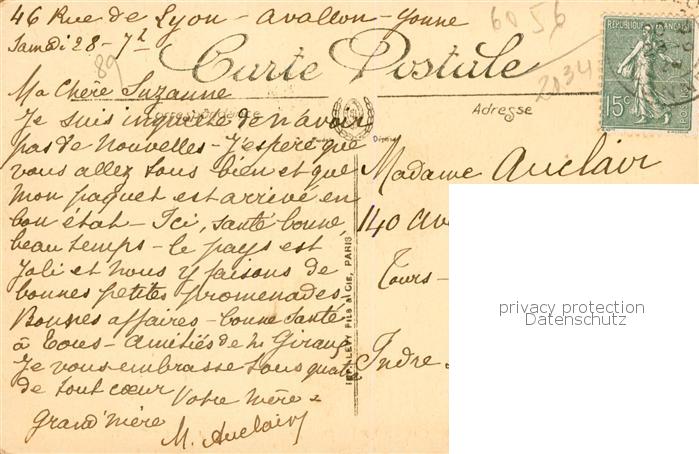 46 Rue de Lyon - Avallon - Yonne
Samedi 28-7bre
89
6056
2034
RÉPUBLIQUE FRANÇAISE
15c
Carte Postale
Correspondance
Adresse
Ma Chère Suzanne
Je suis inquiète de n'avoir
pas de nouvelles - J'espère que
vous allez tous bien et que
mon paquet est arrivé en
bon état - Ici, santé bonne,
beau temps - le pays est
Joli et nous y faisons de
bonnes petites promenades.
Bonnes affaires - bonne santé
à tous - Amitiés de
Je vous embrasse tous quatre
de tout cœur
Votre mère =
grand'mère
M. Auclair
LEVY FILS & CIE, PARIS
Madame Auclair
140 av
Tours -
Indre -
privacy protection
Datenschutz